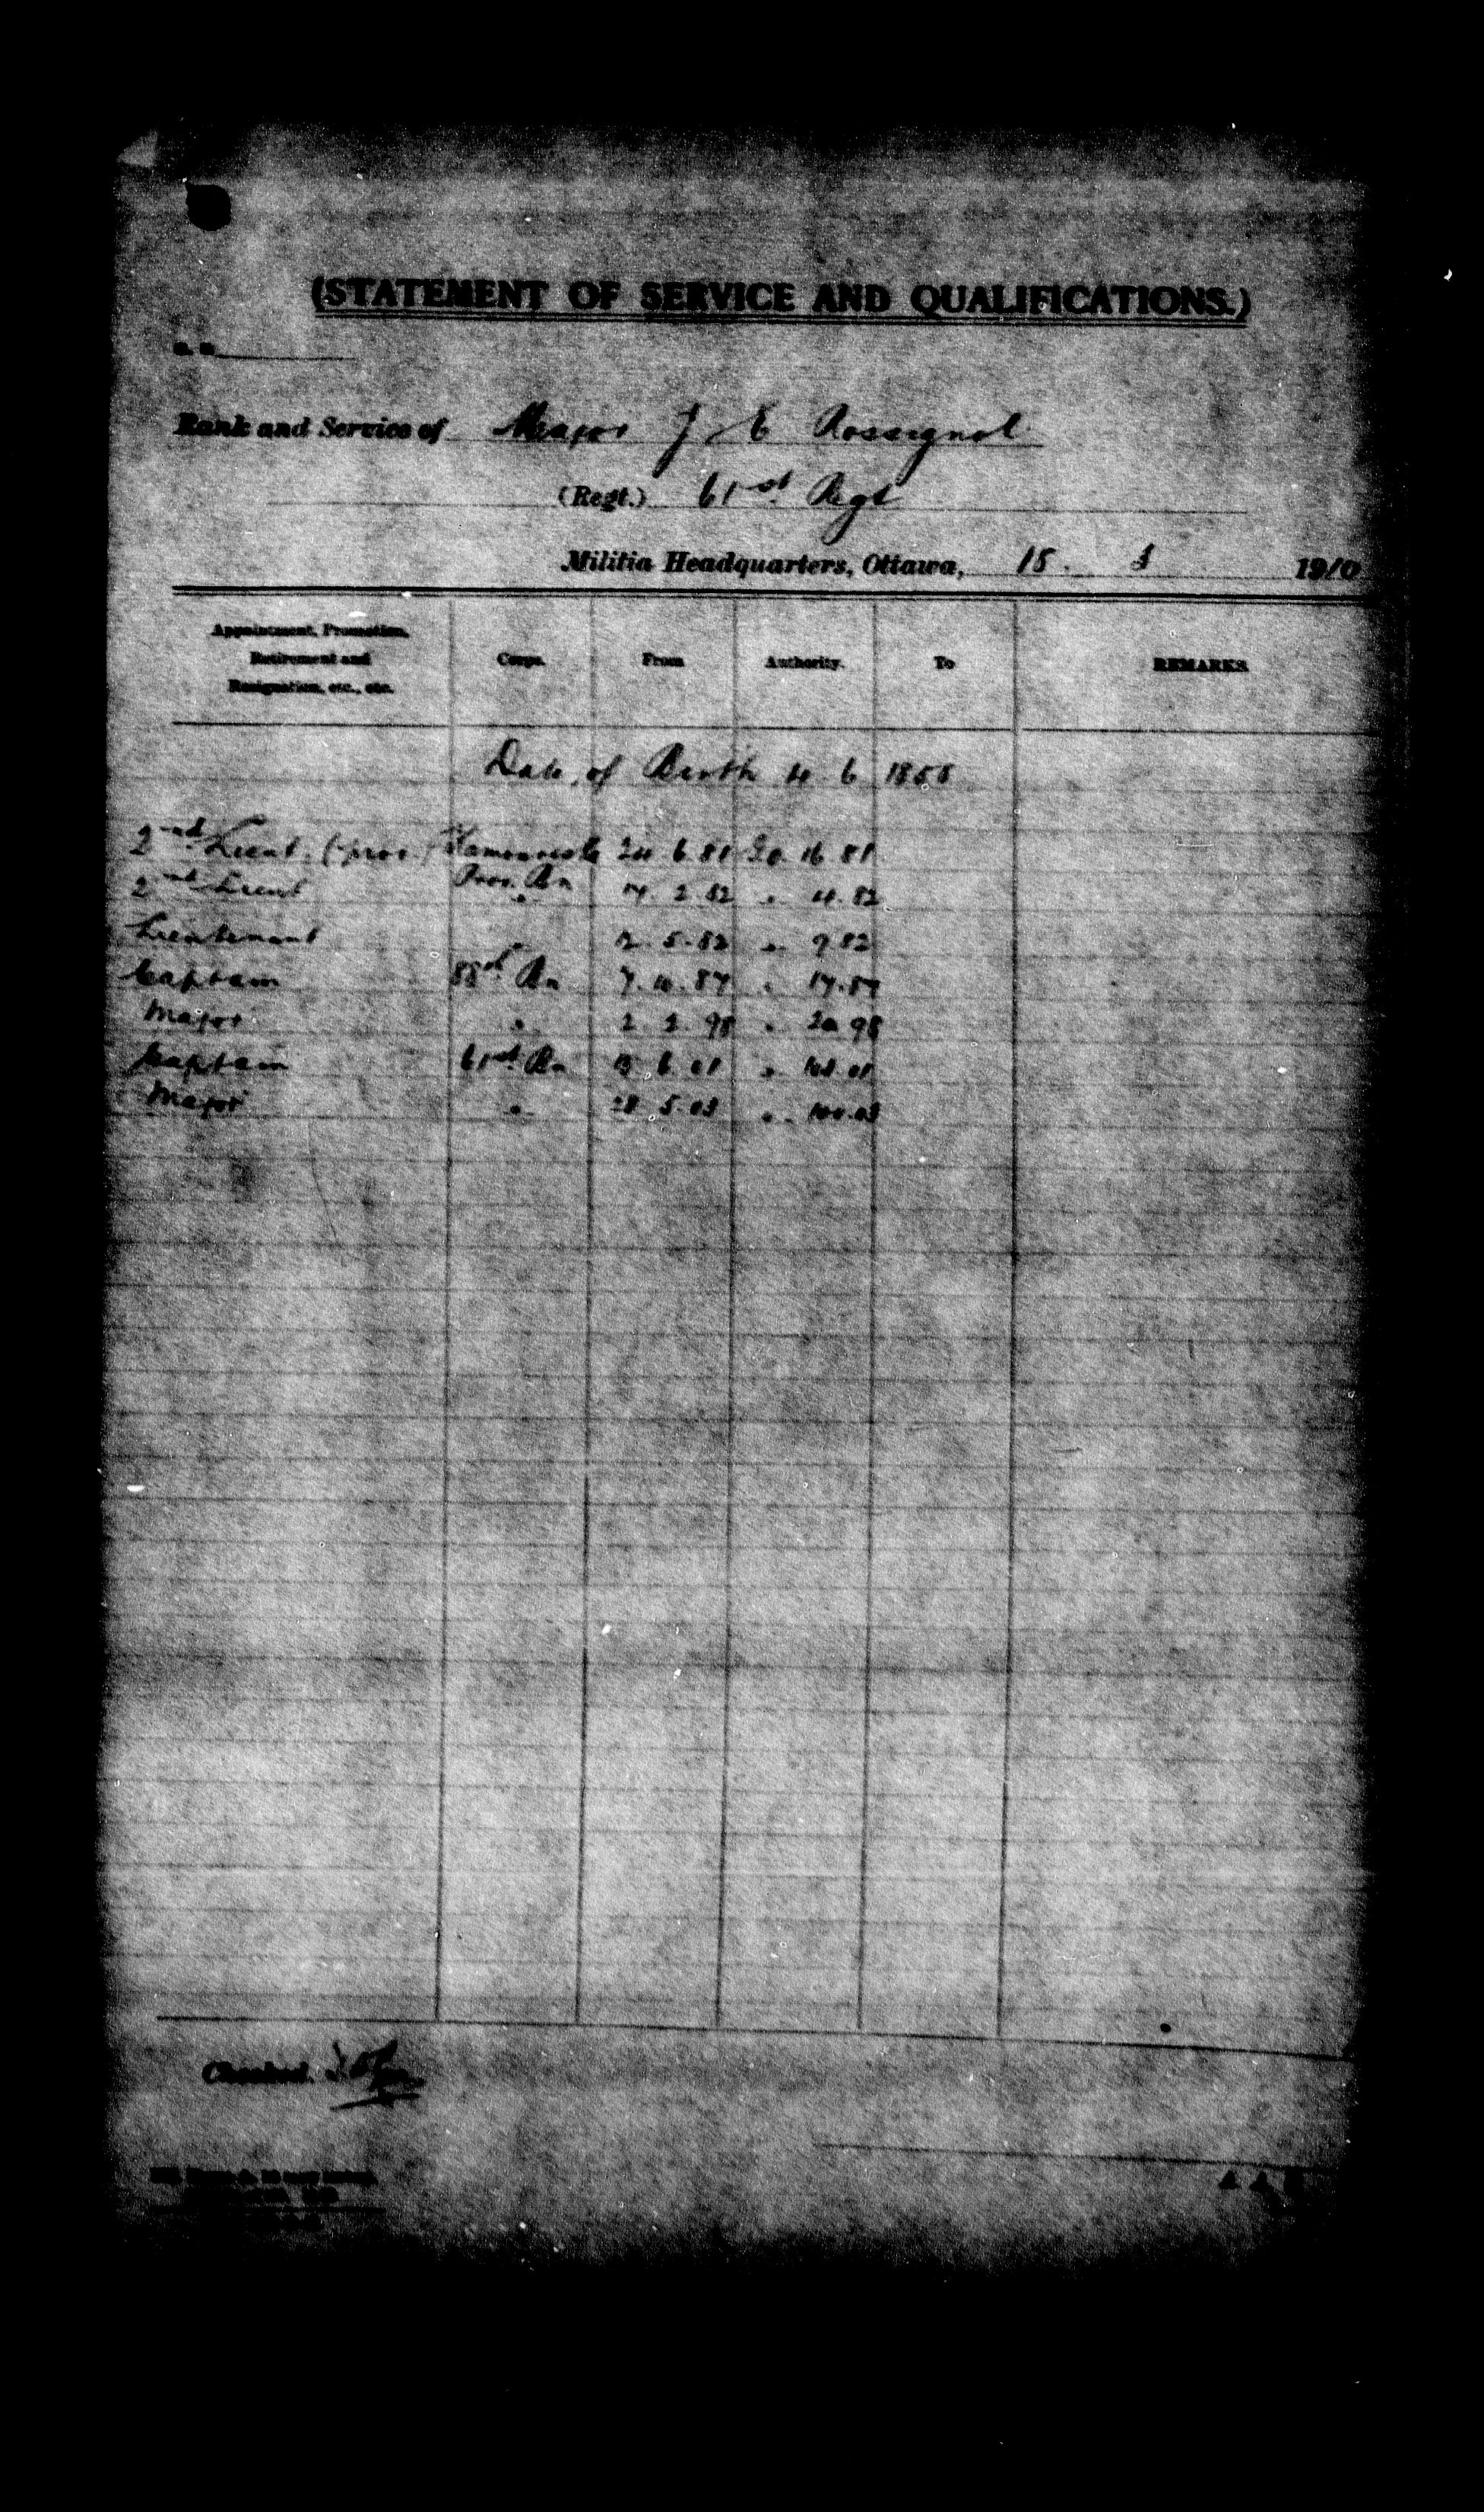 (STATEMENT OF SERVICE AND QUALIFICATIONS.)
Rank and Service of Major J E Rossignol
(Regt.) 61st Regt
Militia Headquarters, Ottawa, 15. 1910
Appointment, Promotion,
Retirement and
Resignation, etc., etc.
Corps. From Authority. To REMARKS
Date of Birth 4 6 1858
2nd Lieut. (prov.) 24 6 81 G.O. 16 81
2nd Lieut Prov. Bn 2 82 " 4. 82
Lieutenant " 12. 5. 82 " 9 82
Captain 88th Bn 7. 87 " 17. 87
Major " 2 2 98 " 20 98
Captain 61st Bn 6 01 "
Major " 28 5. 03 "
Checked.